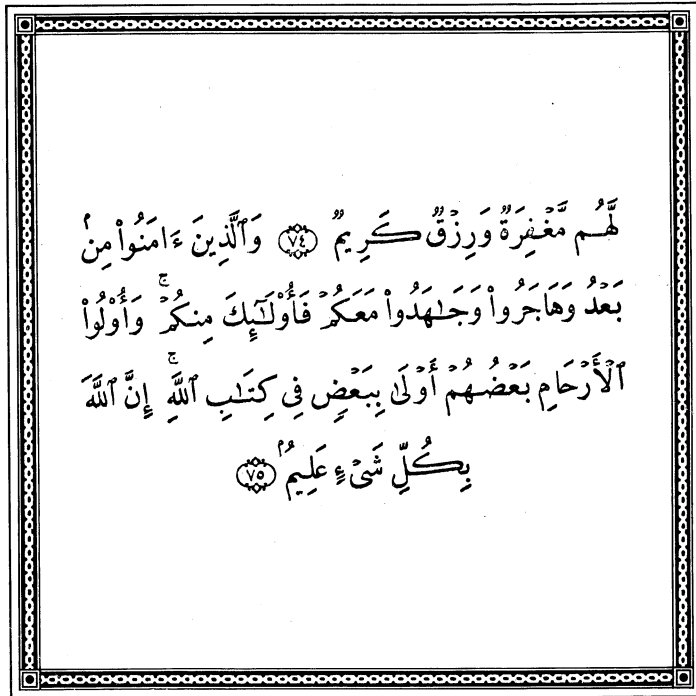 لَّهُم مَّغْفِرَةٌ وَرِزْقٌ كَرِيمٌ ﴿٧٤﴾ وَٱلَّذِينَ ءَامَنُوا۟ مِنۢ
بَعْدُ وَهَاجَرُوا۟ وَجَـٰهَدُوا۟ مَعَكُمْ فَأُو۟لَـٰٓئِكَ مِنكُمْ ۚ وَأُو۟لُوا۟
ٱلْأَرْحَامِ بَعْضُهُمْ أَوْلَىٰ بِبَعْضٍ فِى كِتَـٰبِ ٱللَّهِ ۚ إِنَّ ٱللَّهَ
بِكُلِّ شَىْءٍ عَلِيمٌۢ ﴿٧٥﴾